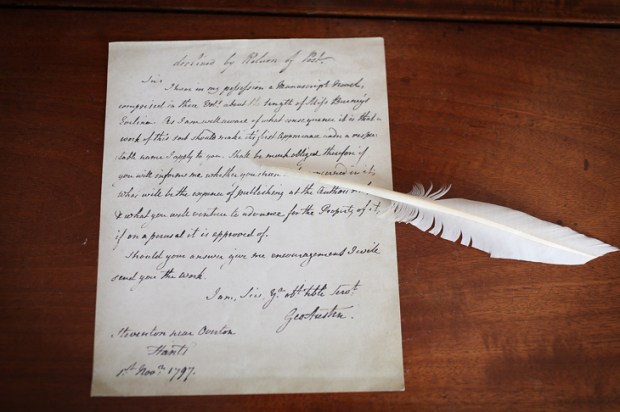 declined by Return of Post
Sir,
I have in my possession a Manuscript Novel,
comprised in three Vols. about the length of Miss Burney's
Evelina. As I am well aware of what consequence it is that a
work of this sort should make its first Appearance under a respec-
table name I apply to you. Shall be much obliged therefore if
you will inform me whether you in it;
What will be the expense of publishing at the Author's
& what you will venture to advance for the Property of it,
if on a perusal it is approved of.
Should your answer give me encouragement I will
send you the work.
I am, Sir, Yr. obt. hble Servt.
Geo Austen.
Steventon near Overton
Hants
1st Novr. 1797.